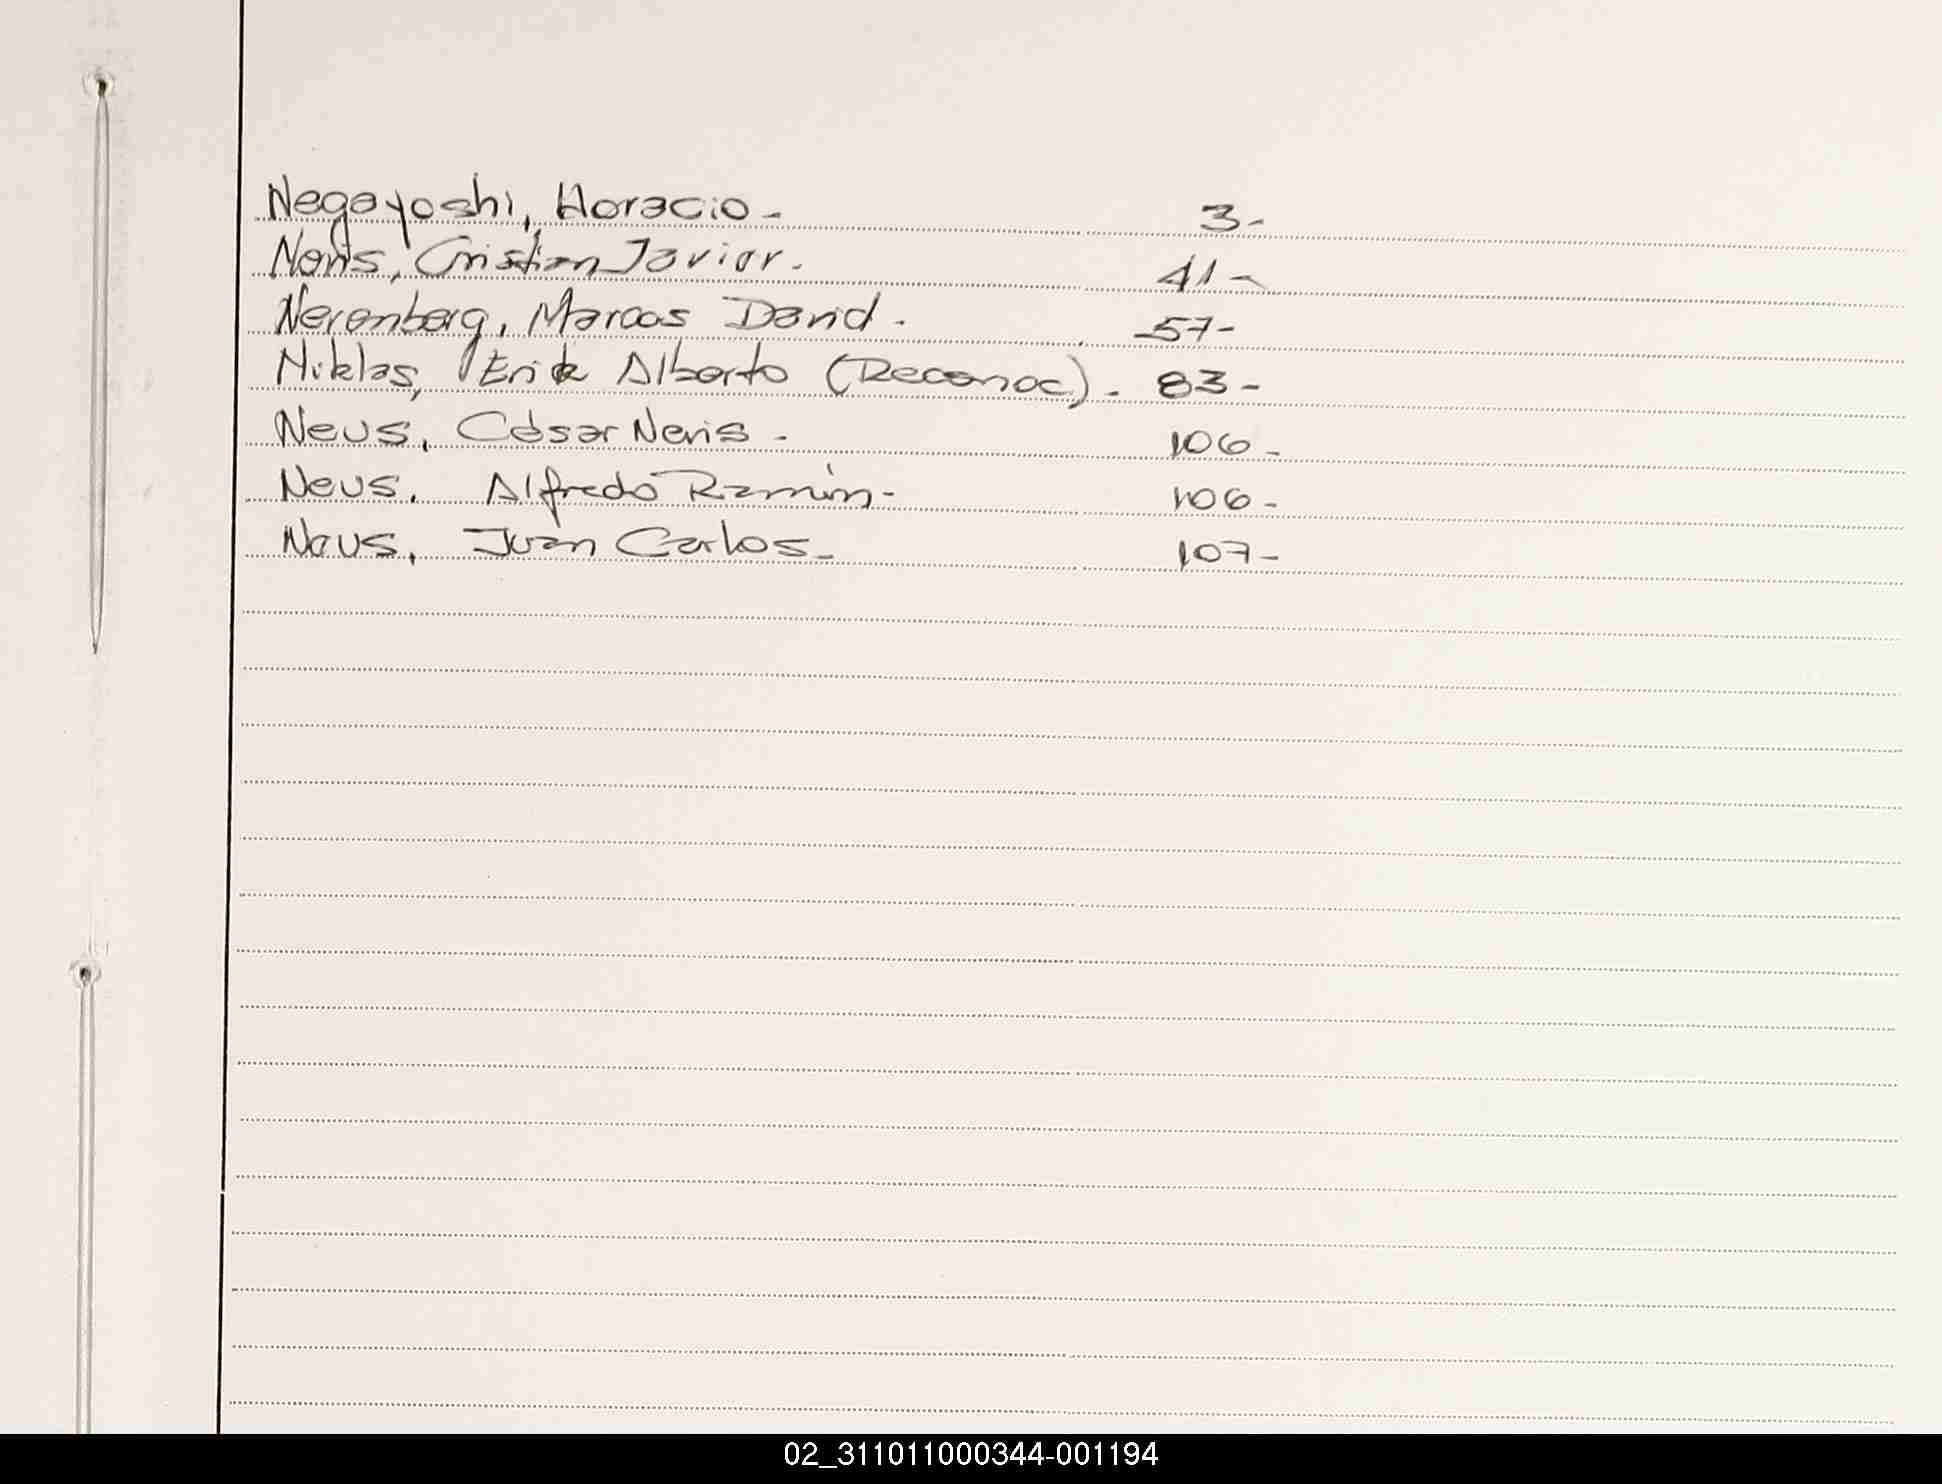 Negayoshi, Horacio - 3-
Neris, Cristian Javier. 41-
Nerenberg, Marcos David. 57-
Niklas, Erik Alberto (Reconoc). 83-
Neus, César Neris - 106-
Neus, Alfredo Ramón - 106-
Neus, Juan Carlos - 107-
02_311011000344-001194